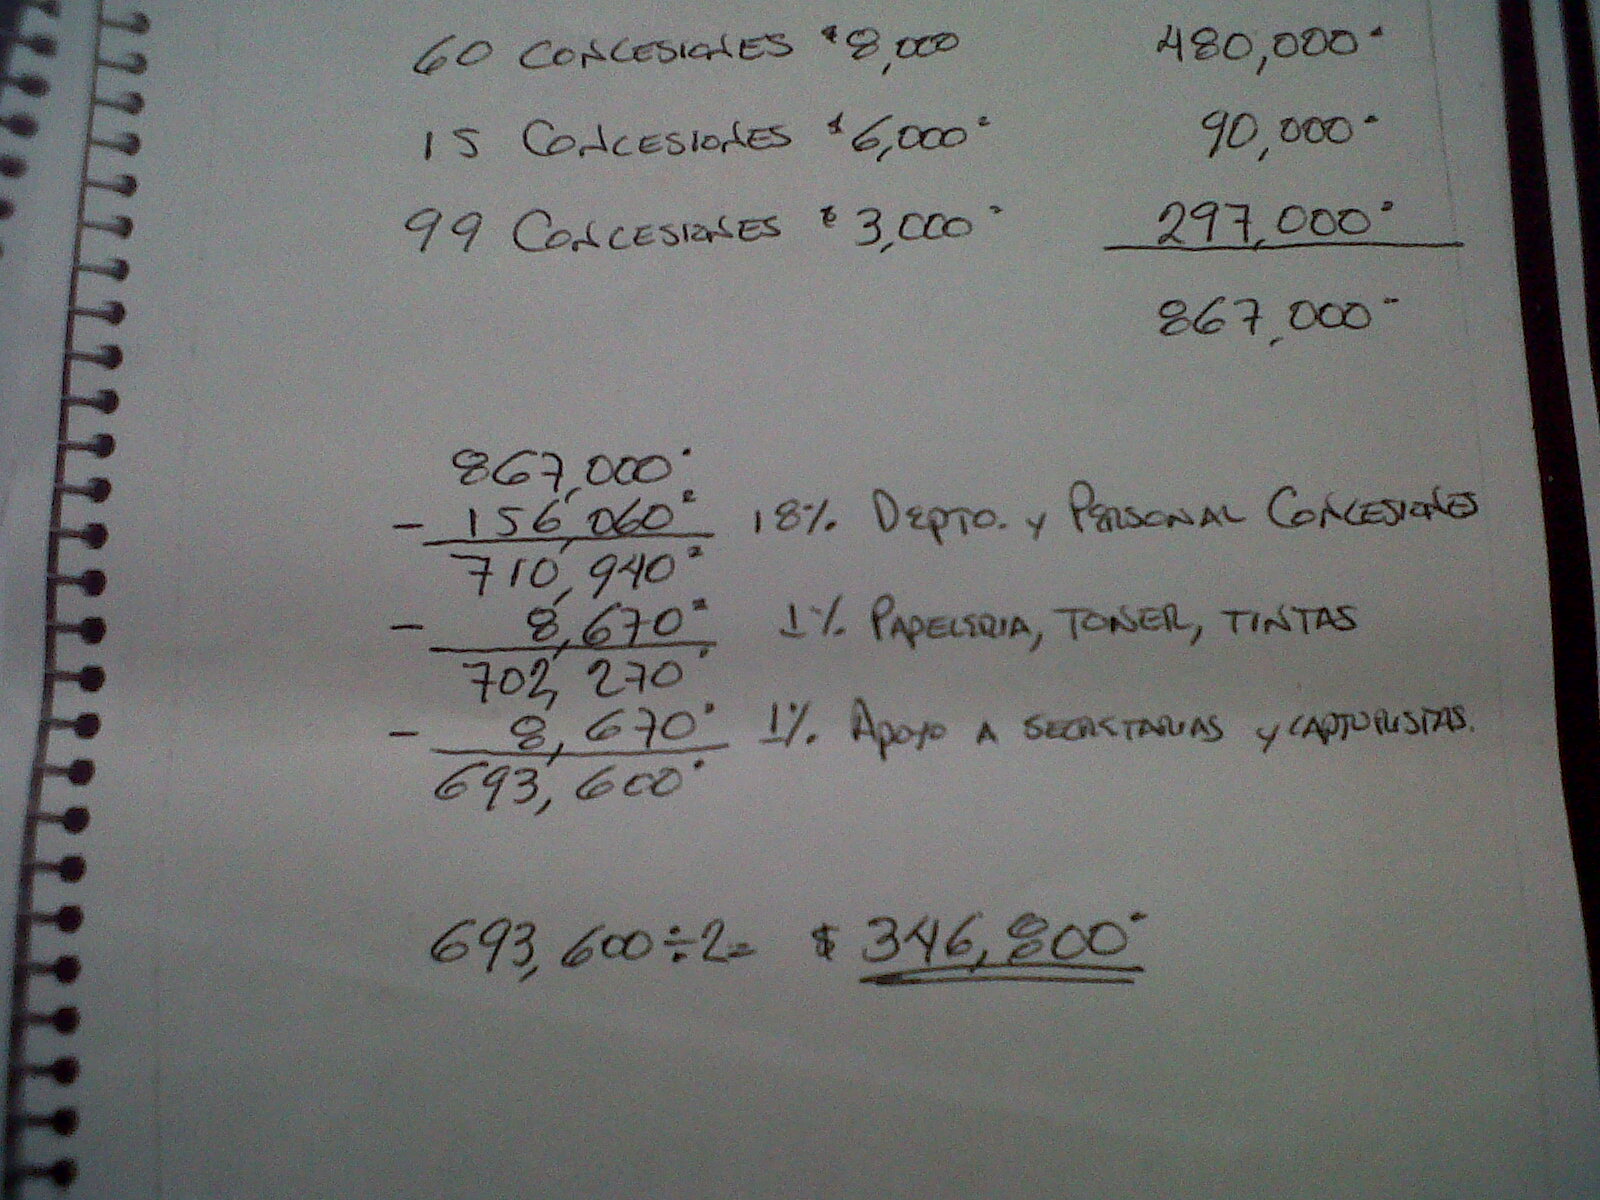 60 CONCESIONES $8,000 480,000=
15 CONCESIONES $6,000= 90,000=
99 CONCESIONES $3,000= 297,000=
867,000=
867,000=
- 156,060= 18% DEPTO. Y PERSONAL CONCESIONES
710,940=
- 8,670= 1% PAPELERIA, TONER, TINTAS
702,270=
- 8,670= 1% APOYO A SECRETARIAS Y CAPTURISTAS.
693,600=
693,600÷2= $ 346,800=